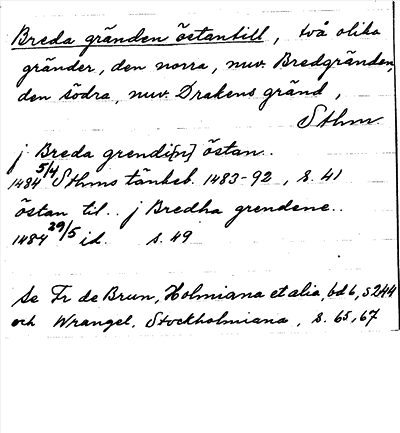 Breda gränden östantill, två olika
gränder, den norra, nuv. Bredgränden,
den södra, nuv. Drakens gränd,
Sthm
j Breda grendi[n] östan..
1484 5/4 Sthms tänkeb. 1483-92, s. 41
östan til.. j Bredha grendene..
1484 29/5 id. s. 49
Se Fr de Brun, Holmiana et alia, bd 6, s 244
och Wrangel, Stockholmiana, s. 65, 67